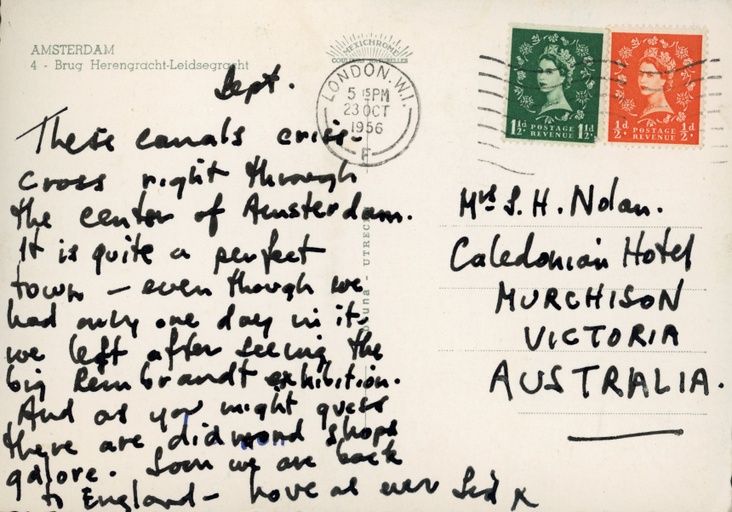 AMSTERDAM
4 - Brug Herengracht-Leidsegracht
MEXICHROME
COULEURS NATURELLES
Sept.
These canals criss-
cross right through
the center of Amsterdam.
It is quite a perfect
town — even though we
had only one day in it.
we left after seeing the
big Rembrandt exhibition.
And as you might guess
there are diamond shops
galore. Soon we are back
to England — Love as ever Sid x
UTRECHT
LONDON. W.1.
5 15 PM
23 OCT
1956
F
1½d 1½d
POSTAGE
REVENUE
½d ½d
POSTAGE
REVENUE
Mrs S. H. Nolan.
Caledonian Hotel
MURCHISON
VICTORIA
AUSTRALIA.